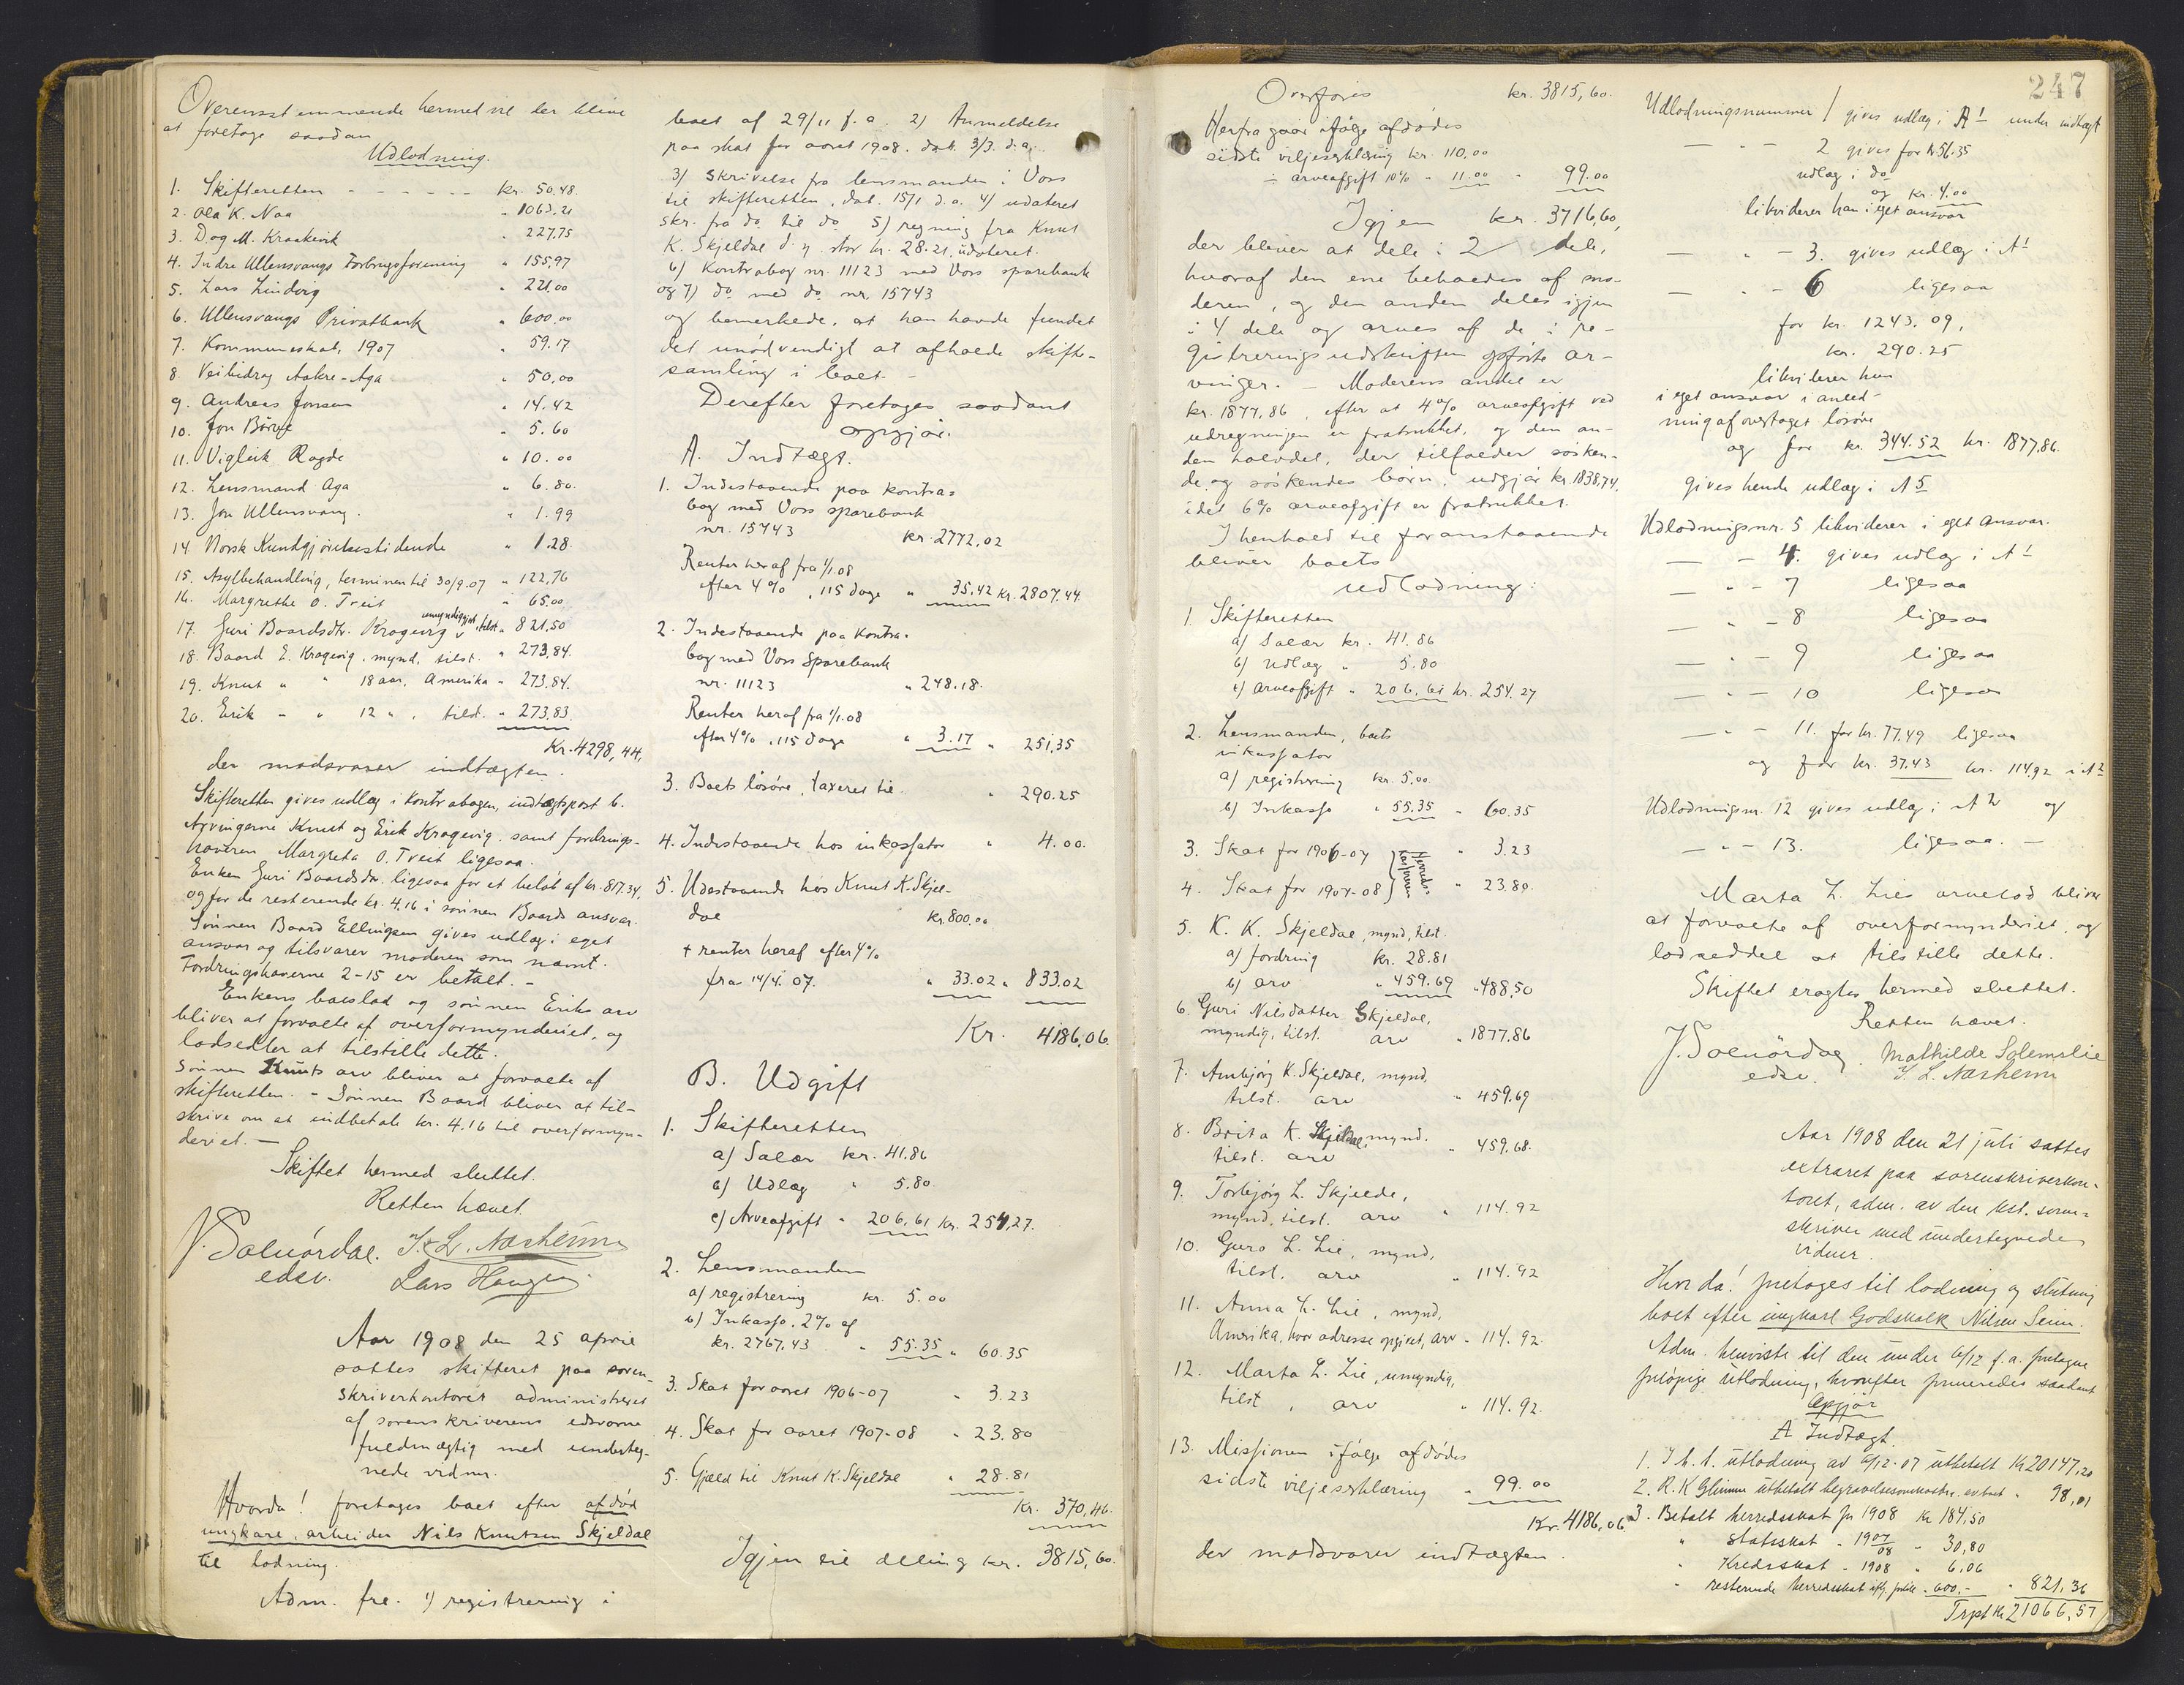 Overensstemmende hermed vil der blive
at foretage saadan
Udlodning.
1. Skifteretten - - - - - - kr. 50.48.
2. Ola K. Naa " 1063.21
3. Dag M. Kraakevik " 227.75
4. Indre Ullensvangs Forbrugsforening " 155,97
5. Lars Lindvig " 221.00
6. Ullensvangs Privatbank " 600.00
7. Kommuneskat, 1907 " 59.17
8. Veibidrag Aakre-Aga " 50,00
9. Andreas Jonsen " 14.42
10. Jon Börve " 5.60
11. Vigleik Ragde " 10.00
12. Lensmand Aga " 6.80.
13. Jon Ullensvang. " 1.99
14. Norsk Kundgjörelsestidende " 1.28.
15. Asylbehandling, terminen til 30/9.07 " 122,76
16. Margrethe O. Treit " 65.00
17. Guri Baardsdtr. Kragevig umyndiggjort, tilst. " 821,50
18. Baard E. Kragevig, mynd, tilst. " 273,84.
19. Knut " " 18 aar, Amerika " 273,84.
20. Erik " " 12 " , tilst. " 273,83.
Kr. 4298,44,
der modsvarer indtægten.
Skifteretten gives udlæg i Kontrabogen, indtægtspost 6.
Arvingerne Knut og Erik Kragevig samt fordrings-
haveren Margreta O. Treit ligesaa.
Enken Guri Baardsdtr. ligesaa for et belöb af kr. 817.34,
og for de resterende kr. 4.16 i sönnen Baards ansvar.
Sönnen Baard Ellingsen gives udlæg i eget
ansvar og tilsvarer moderen som nævnt.
Fordringshaverne 2-15 er betalt. -
Enkens boeslod og sönnen Eriks arv
bliver at forvalte af overformynderiet, og
lodsedler at tilstille dette.
Sönnen Knuts arv bliver at forvalte af
skifteretten. - Sönnen Baard bliver at til-
skrive om at indbetale kr. 4.16 til overformyn-
deriet. -
Skiftet hermed sluttet.
Retten hævet.
J. Solnördal. I. L. Næsheim
edsv. Lars Haugen
Aar 1908 den 25 april
sattes skifteret paa soren-
skriverkontoret administreret
af sorenskriverens edsvorne
fuldmægtig med underteg-
nede vidner.
Hvorda! foretoges boet efter afdöd
ungkarl, arbeider Nils Knutsen Skjeldal
til lodning.
Adm. fre. 1) registrering i
boet af 29/11 f.a. 2) Anmeldelse
paa skat for aaret 1908. dat. 3/3. d.a.
3) Skrivelse fra lensmanden i Voss
til skifteretten, dat. 15/1 d.a. 4) udateret
skr. fra do. til do. 5) regning fra Knut
K. Skjeldal d.y. stor kr. 28.21, udateret.
6) Kontrabog nr. 11123 med Voss sparebank
og 7) do. med do. nr. 15743
og bemerkede, at han havde fundet
det unödvendigt at afholde skifte-
samling i boet. -
Derefter foretoges saadant
opgjör.
A. Indtægt.
1. Indestaaende paa kontra-
bog med Voss sparebank
nr. 15743 kr. 2772,02
Renter heraf fra 1/1.08
efter 4%, 115 dage " 35,42 kr. 2807.44
2. Indestaaende paa kontra-
bog med Voss Sparebank
nr. 11123 " 248.18.
Renter heraf fra 1/1.08
efter 4%, 115 dage " 3.17 " 251,35
3. Boets lösöre, taxeret til " 290.25
4. Indestaaende hos inkassator " 4.00.
5. Udestaaende hos Knut K. Skjel-
dal kr. 800.00
+ renter heraf efter 4%
fra 14/4. 07. " 33.02 " 833.02
Kr. 4186,06.
B. Udgift
1. Skifteretten
a) Salær kr. 41.86
b) Udlæg " 5.80.
c) Arveafgift " 206,61 kr. 254,27.
2. Lensmanden
a) registrering kr. 5.00
b) Inkasso. 2% af
kr. 2767,43 " 55.35 " 60.35
3. Skat for aaret 1906-07 " 3.23
4. Skat for aaret 1907-08 " 23.80
5. Gjæld til Knut K. Skjeldal " 28.81
Kr. 370,46.
Igjen til deling kr. 3815,60.
Overföres kr. 3815,60.
Herfra gaar ifölge afdödes
sidste viljeserklæring kr. 110,00
÷ arveafgift 10% " 11.00 " 99.00
Igjen kr. 3716,60,
der bliver at dele i 2 dele,
hvoraf den ene behoedes af mo-
deren, og den anden deles igjen
i 4 dele og arves af de i re-
gistreringsudskriften opförte ar-
vinger. - Moderens andel er
kr. 1877,86, efter at 4% arveafgift ved
udregningen er fratrukket, og den an-
den halvdel, der tilfalder sösken-
de og söskendes börn, udgjör kr. 1838,74,
idet 6% arveafgift er fratrukket.
I henhold til foranstaaende
bliver boets
udlodning:
1. Skifteretten
a) Salær kr. 41.86
b) Udlæg " 5.80
c) arveafgift " 206,61 kr. 254.27
2. Lensmanden, boets
inkassator
a) registrering kr. 5.00.
b) Inkasso " 55.35 " 60.35
3. Skat for 1906-07 " 3.23
4. Skat for 1907-08 " 23.80.
Herreds-
kassen
5. K. K. Skjeldal, mynd, tilst.
a) fordring kr. 28.81
b) arv " 459.69 " 488,50
6. Guri Nilsdatter Skjeldal,
myndig, tilst. arv " 1877.86
7. Ambjörg K. Skjeldal, mynd,
tilst. arv " 459.69
8. Brita K. Skjeldal, mynd.
tilst. arv " 459.68.
9. Torbjörg L. Skjelde,
mynd, tilst. arv " 114.92
10. Guro L. Lie, mynd,
tilst. arv " 114.92
11. Anna L. Lie, mynd,
Amerika, hvor adresse opgivet, arv " 114.92.
12. Marta L. Lie, umyndig,
tilst, arv " 114.92.
13. Missionen ifölge afdödes
sidste viljeserklæring " 99.00
Kr. 4186,06.
der modsvarer indtægten.
247
Udlodningsnummer 1 gives udlæg i A1 under indtægt
— " - 2 gives for kr 56.35
udlæg i do
og kr. 4.00
likviderer han i eget ansvar
— " - 3. gives udlæg i A1
— " - 6 ligesaa
for kr. 1243.09,
kr. 290.25
likviderer hun
i eget ansvar i anled-
ning af overtaget lösöre
og for kr. 344.52 kr. 1877,86.
gives hende udlæg i A5
Udlodningsnr. 5 likviderer i eget ansvar.
— " - 4. gives udlæg i A1
— " - 7 ligesaa
— " - 8 ligesaa
— " - 9 ligesaa
— " - 10 ligesaa
— " - 11. for kr. 77.49 ligesaa
og for kr. 37.43 kr. 114,92 i A2
Udlodningsnr. 12 gives udlæg i A2 og
— " - 13. ligesaa. -
Marta L. Lies arvelod bliver
at forvalte af overformynderiet, og
lodseddel at tilstille dette.
Skiftet eragtes hermed sluttet.
Retten hævet.
J. Solnördal. Mathilde Solemslie
edsv. I. L. Næsheim
Aar 1908 den 21 juli sattes
extraret paa sorenskriverkon-
toret, adm. av den kst. soren-
skriver med undertegnede
vidner.
Hvor da! foretoges til lodning og slutning
boet efter ungkarl Godskalk Nilsen Seim.
Adm. henviste til den under 6/12 f.a. foretagne
forlöpige utlodning, hvorefter passeredes saadant
Opgjör
A Indtægt.
1. I h. t. utlodning av 6/12-07 utbetalt Kr 20147,20
2. R. K Glimme utbetalt begravelsesomkostn. av boet " 98,01
3. Betalt herredsskat for 1908 Kr 184,50
" statsskat " 1907/08 " 30,80
" Kredsskat " 1908 " 6,06
" resterende herredsskat " 600.- " 821,36
Trpt Kr 21066,57